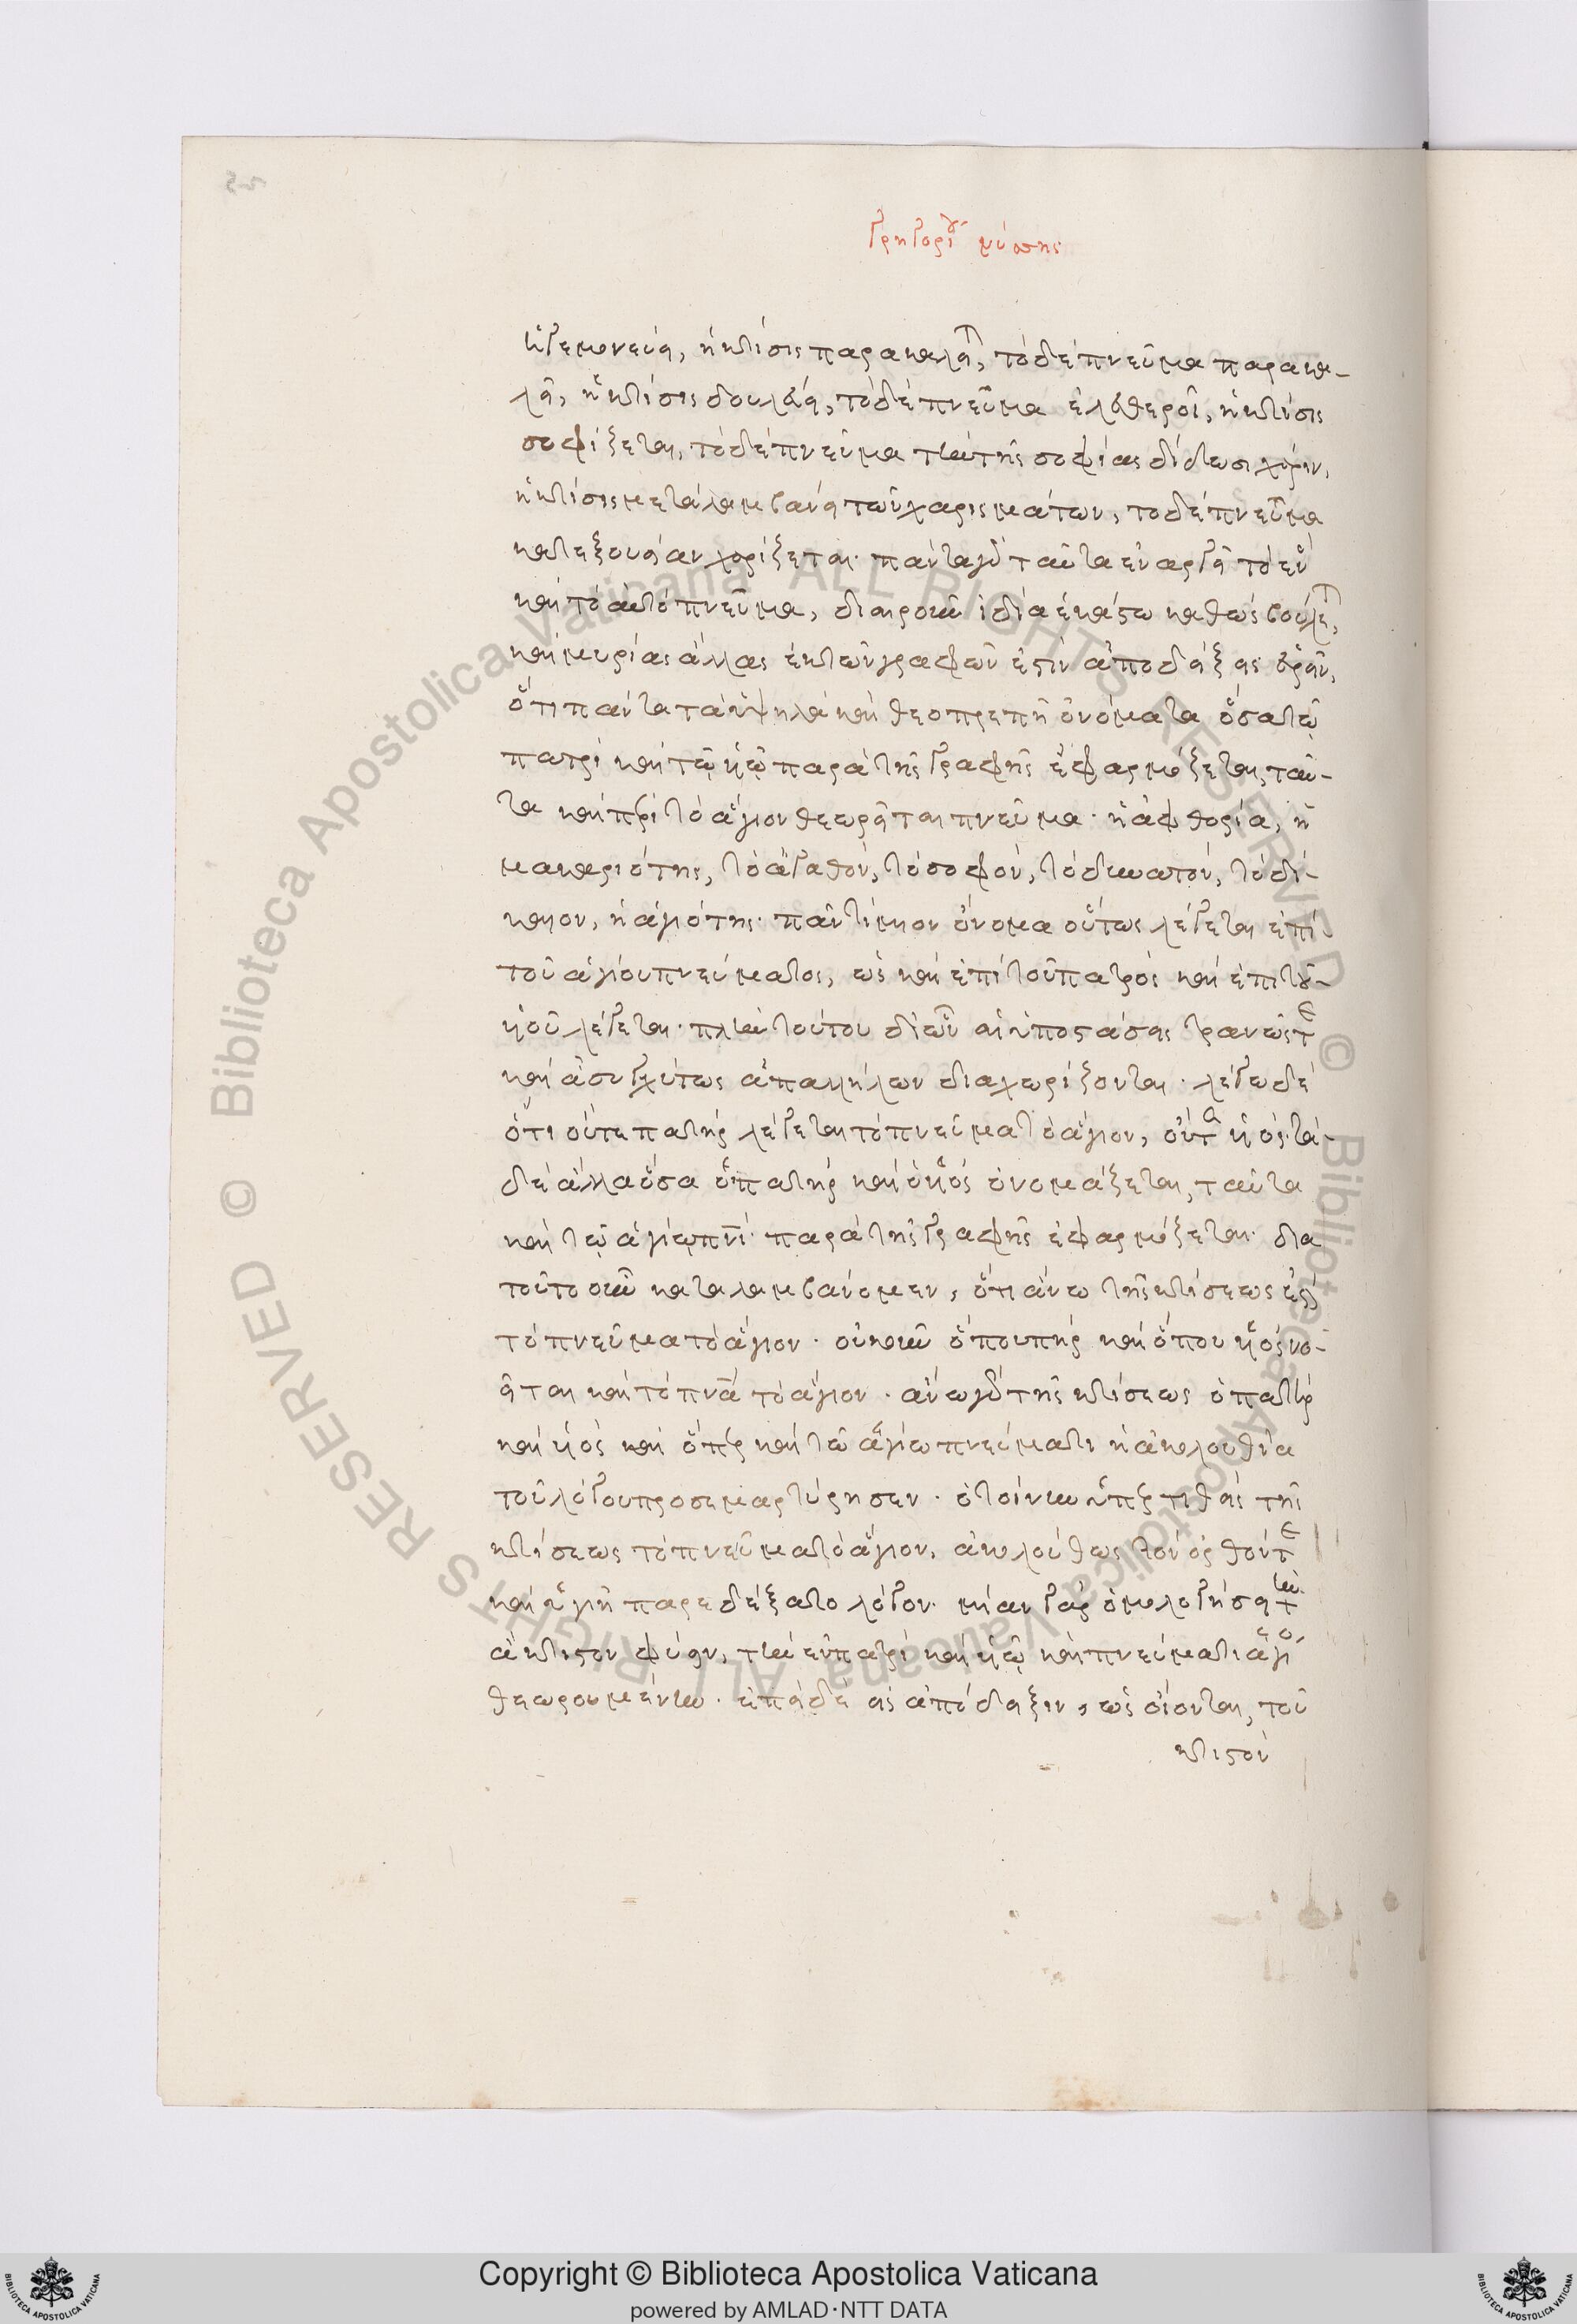 Γρηγορίου νύσης
ἡγεμονεύει, ἡ κτίσις παρακαλεῖται, τὸ δὲ πνεῦμα παρακα-
λεῖ, ἡ κτίσις δουλεύει, τὸ δὲ πνεῦμα ἐλευθεροῖ, ἡ κτίσις
σοφίζεται, τὸ δὲ πνεῦμα τὴν τῆς σοφίας δίδωσι χάριν,
ἡ κτίσις μεταλαμβάνει τῶν χαρισμάτων, το δὲ πνεῦμα
κατεξουσίαν χαρίζεται· πάντα γὰρ ταῦτα ἐνεργεῖ τὸ ἓν
καὶ τὸ αὐτὸ πνεῦμα, διαιροῦν ἰδία ἑκάστω καθὼς βούλεται,
καὶ μυρίας ἄλλας ἐκ τῶν γραφῶν ἐστὶν ἀποδείξεις εὑρεῖν,
ὅτι πάντα τὰ ὑψηλὰ καὶ θεοπρεπῆ ὀνόματα ὅσα τῷ
πατρὶ καὶ τῷ υἱῷ παρὰ τῆς γραφῆς ἐφαρμόζεται, ταῦ-
τα καὶ περὶ τὸ ἅγιον θεωρεῖται πνεῦμα· ἡ ἀφθορσία, ἡ
μακαριότης, τὸ ἀγαθὸν, τὸ σοφὸν, τὸ δυνατὸν, τὸ δί-
καιον, ἡ ἁγιότης· πᾶν τίμιον ὄνομα οὕτως λέγεται ἐπὶ
τοῦ ἁγίου πνεύματος, ὡς καὶ ἐπὶ τοῦ πατρὸς καὶ ἐπι τοῦ
υἱοῦ λέγεται· πλὴν τούτου δι' ὧν αἱ ὑποστάσεις τρανῶς τε
καὶ ἀσυγχύτως ἀπαλλήλων διαχωρίζονται· λέγω δὲ
ὅτι οὔτε πατὴρ λέγεται τὸ πνεῦμα τὸ ἅγιον, οὔτε υἱός· τὰ
δὲ ἄλλα ὅσα ὁ πατὴρ καὶ ὁ υἱὸς ὀνομάζεται, ταῦτα
καὶ τῷ ἁγίῳ πνὶ παρὰ τῆς γραφῆς ἐφαρμόζεται· δια
τοῦτο οὖν καταλαμβάνομεν, ὅτι ἄνω τῆς κτίσεως ἐστὶ
τὸ πνεῦμα τὸ ἅγιον· οὐκοῦν ὅπου πὴρ καὶ ὅπου υἱὸς νο-
εῖται καὶ τὸ πνᾶ τὸ ἅγιον· ἄνω γὰρ τῆς κτίσεως ὁ πατὴρ
καὶ υἱὸς καὶ ὅπερ καὶ τῶ ἁγίω πνεύματι ἡ ἀκολουθία
τοῦ λόγου προσεμαρτύρησεν· ὁ τοίνυν ὑπερτιθεὶς τῆς
κτίσεως τὸ πνεῦμα τὸ ἅγιον, ἀκολούθως τὸν ὀρθόν τε
καὶ ὑγιῆ παρεδέξατο λόγον· μίαν γὰρ ὁμολογήσει τὴν
ἄκτιστον φύσιν, τὴν ἐν πατρὶ καὶ υἱῷ καὶ πνεύματι ἁγίω
θεωρουμένην· ἐπεὶ δὲ εἰς ἀπόδειξιν, ὡς οἴονται, τοῦ
κτιστὸν